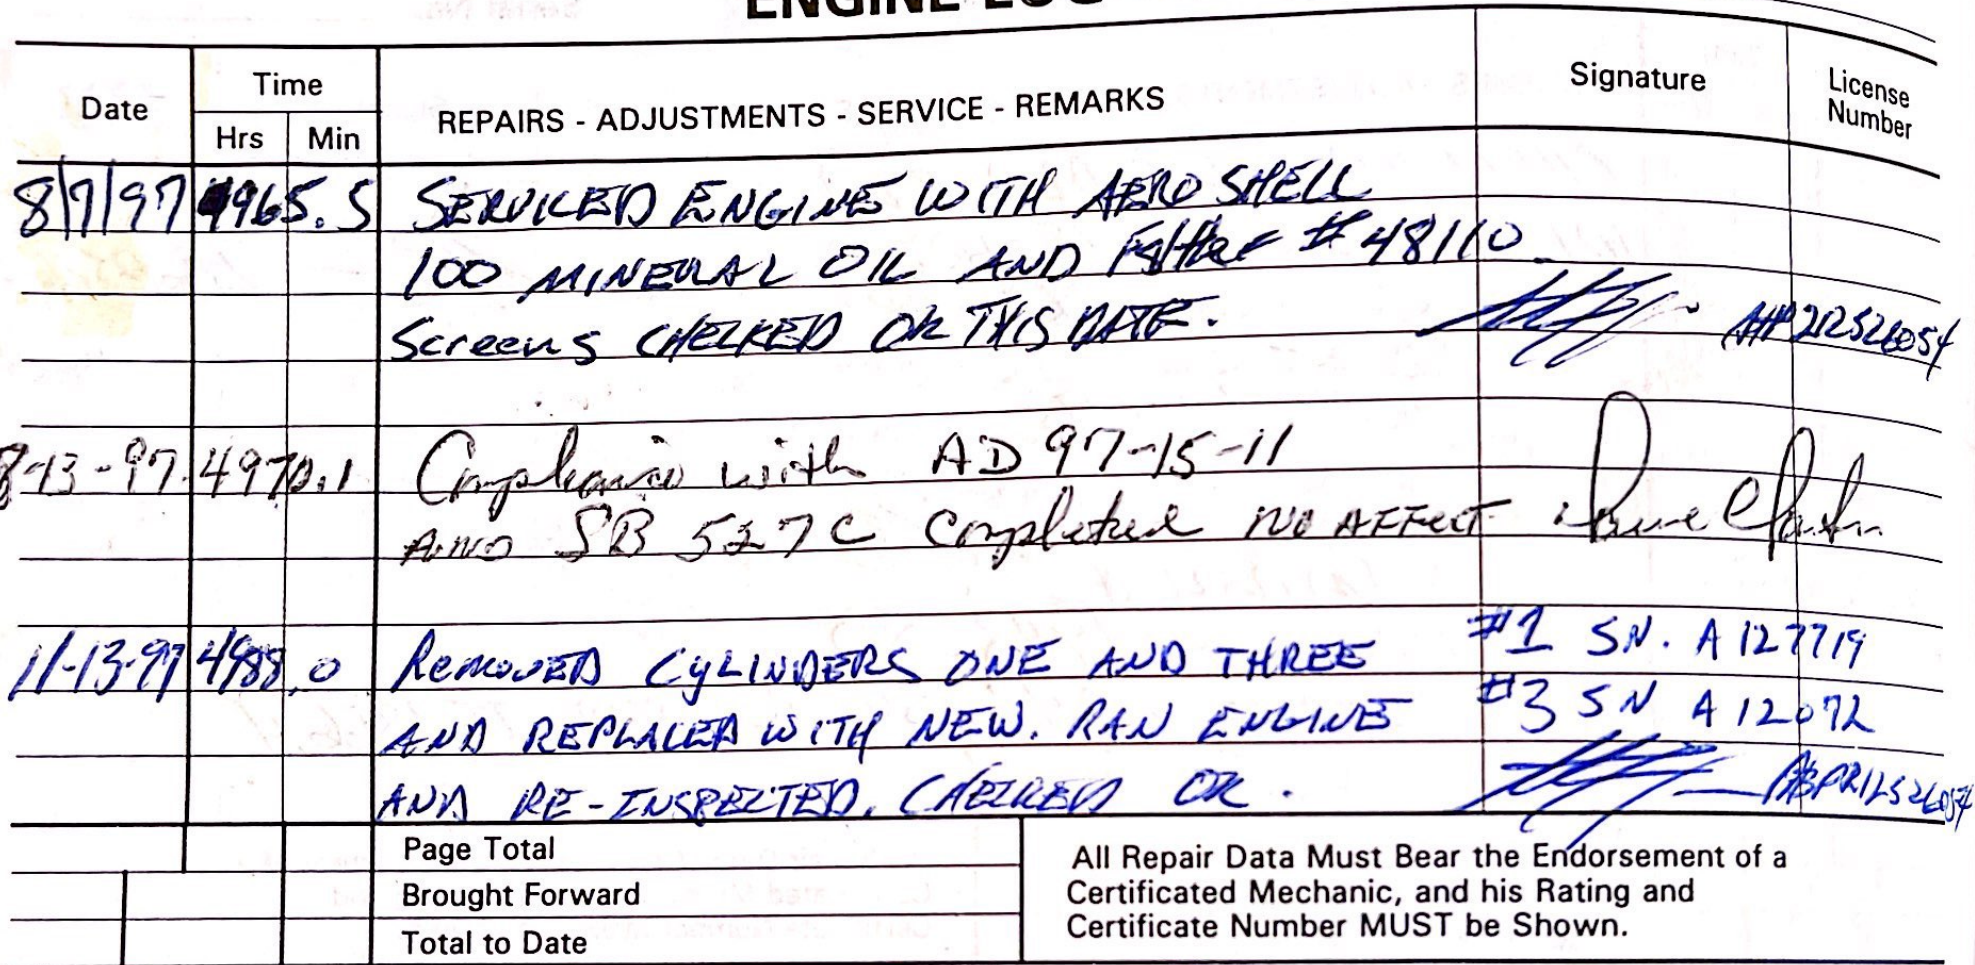 ENGINE LOG
Date Time REPAIRS - ADJUSTMENTS - SERVICE - REMARKS Signature License Number
Hrs Min
8/7/97 4965.5 SERVICED ENGINE WITH AERO SHELL
100 MINERAL OIL AND Filter #48110
Screens CHECKED OK THIS DATE.
8-13-97 4970.1 Compliance with AD 97-15-11
AND SB 527C Completed NO AFFECT
11-13-97 4988.0 REMOVED CYLINDERS ONE AND THREE #1 SN. A127719
AND REPLACED WITH NEW. RAN ENGINE #3 SN A12072
AND RE-INSPECTED. CHECKED OK.
Page Total
Brought Forward
Total to Date
All Repair Data Must Bear the Endorsement of a
Certificated Mechanic, and his Rating and
Certificate Number MUST be Shown.